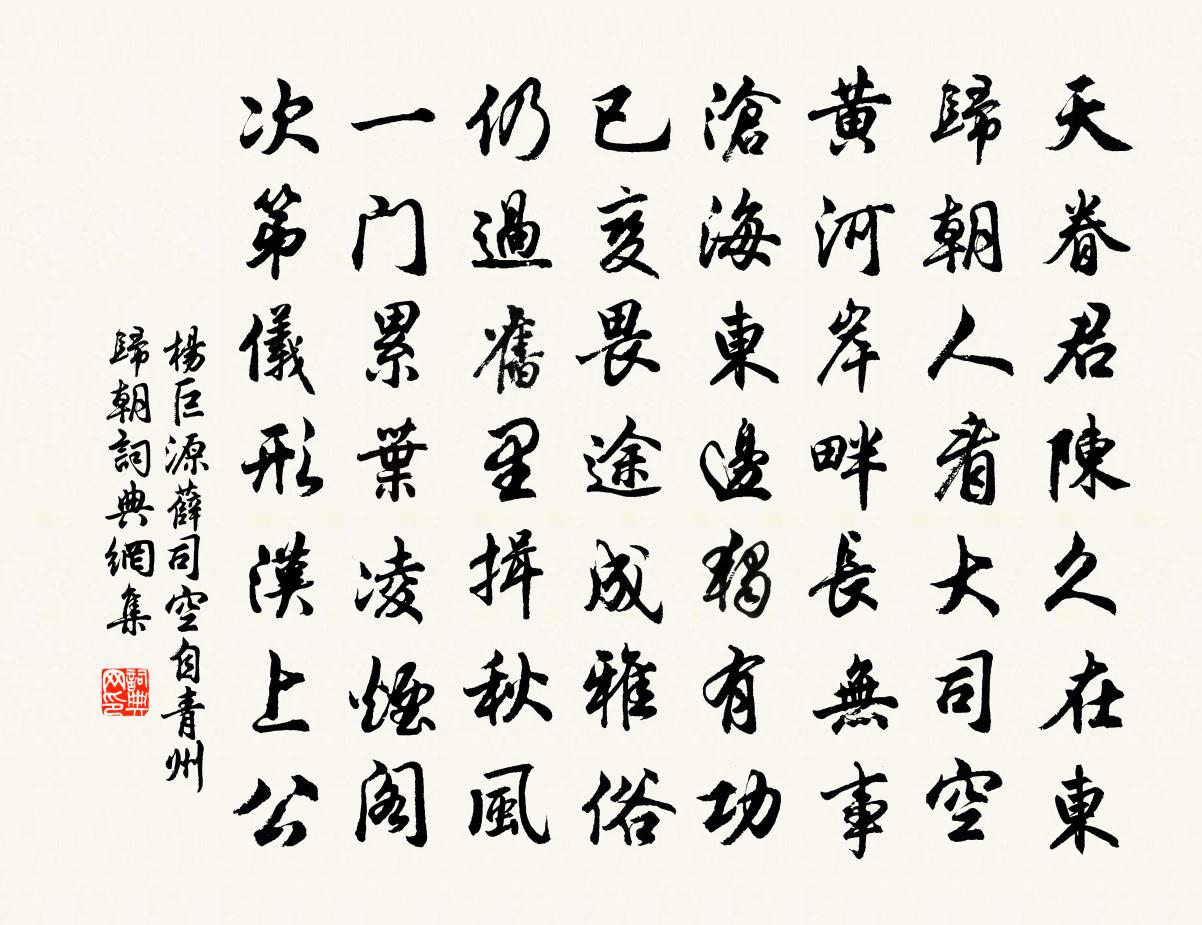 天眷君陳久在東
歸朝人看大司空
黃河岸畔長無事
滄海東邊獨有功
已變畏途成雅俗
仍過舊里揖秋風
一門累葉凌煙閣
次第儀形漢上公
楊巨源薛司空自青州
歸朝詞典網集
詞典
网印